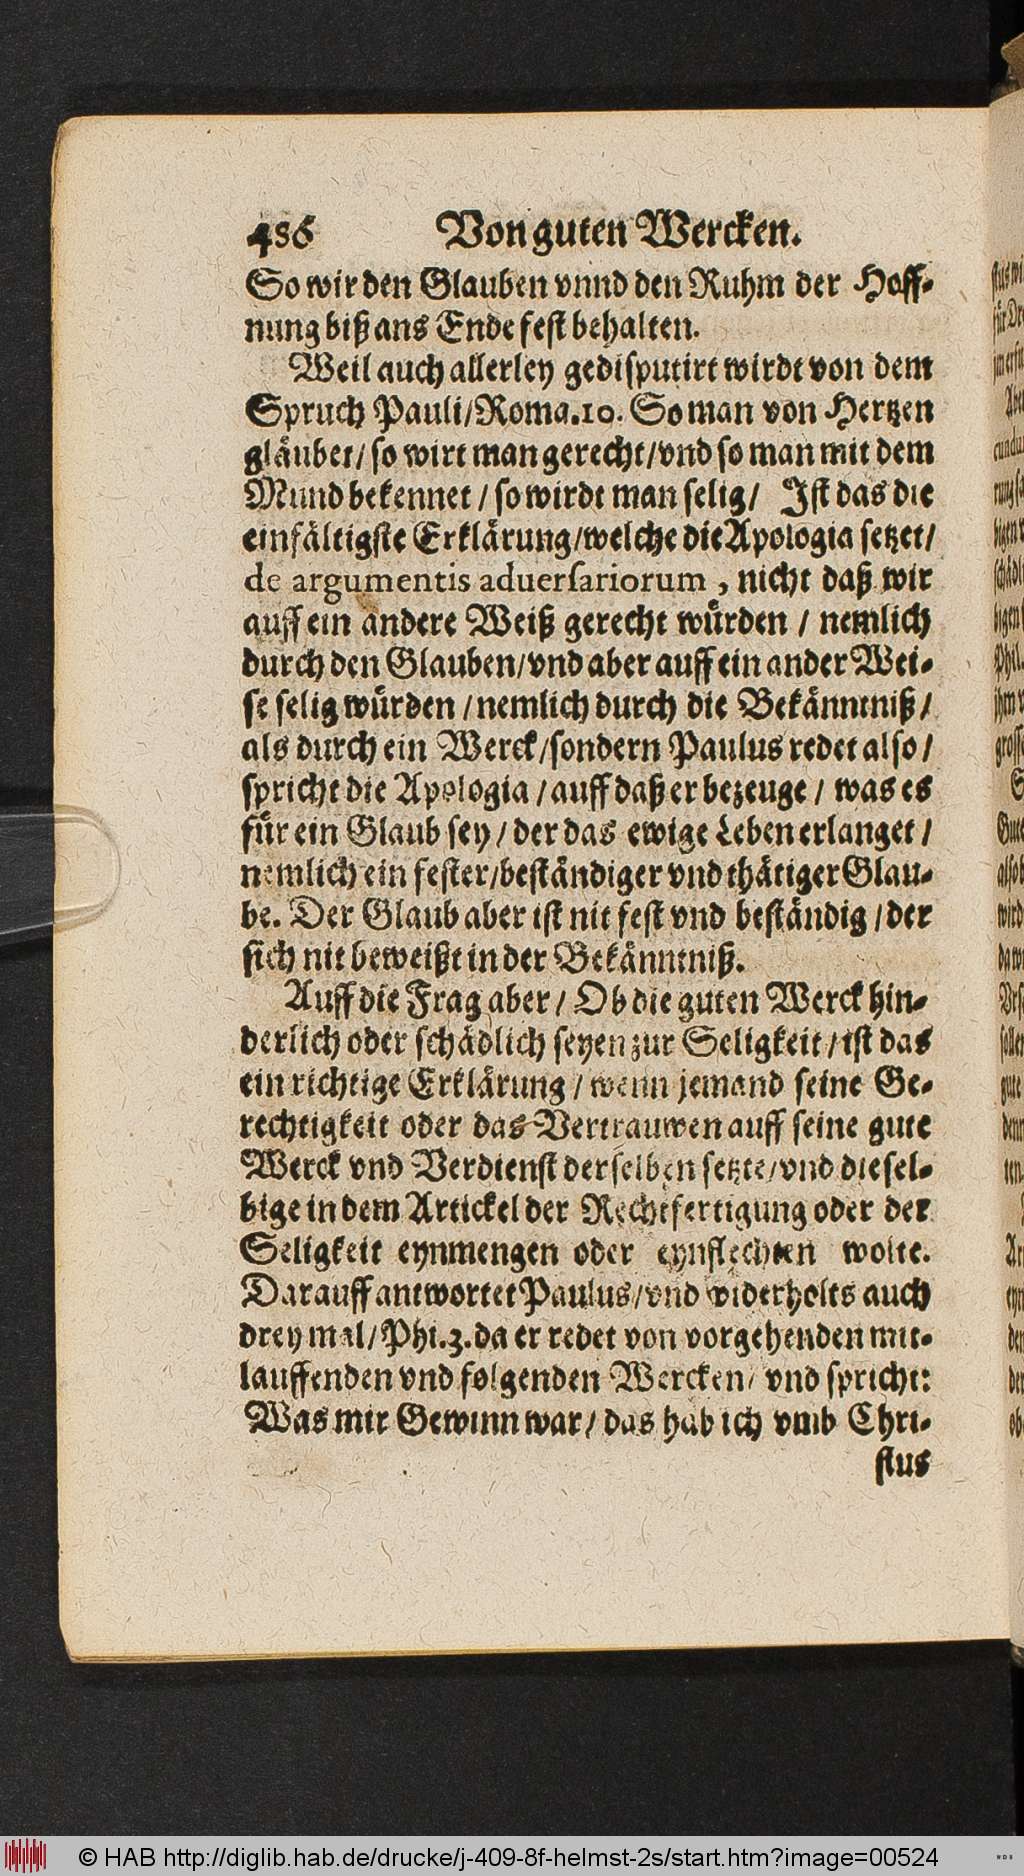 486 Von guten Wercken.
So wir den Glauben vnnd den Ruhm der Hoff-
nung biß ans Ende fest behalten.
Weil auch allerley gedisputirt wirdt von dem
Spruch Pauli/Roma.10. So man von Hertzen
gläubet/so wirt man gerecht/vnd so man mit dem
Mund bekennet/so wirdt man selig/ Ist das die
einfältigste Erklärung/welche die Apologia setzet/
de argumentis aduersariorum, nicht daß wir
auff ein andere Weiß gerecht würden/nemlich
durch den Glauben/vnd aber auff ein ander Wei-
se selig würden/nemlich durch die Bekänntniß/
als durch ein Werck/sondern Paulus redet also/
spricht die Apologia/auff daß er bezeuge/was es
für ein Glaub sey/der das ewige Leben erlanget/
nemlich ein fester/beständiger vnd thätiger Glau-
be. Der Glaub aber ist nit fest vnd beständig/der
sich nit beweißt in der Bekänntniß.
Auff die Frag aber/Ob die guten Werck hin-
derlich oder schädlich seyen zur Seligkeit/ist das
ein richtige Erklärung/wenn jemand seine Ge-
rechtigkeit oder das Vertrauwen auff seine gute
Werck vnd Verdienst derselben setzte/vnd diesel-
bige in dem Artickel der Rechtfertigung oder der
Seligkeit eynmengen oder eynflechten wolte.
Darauff antwortet Paulus/vnd widerholts auch
drey mal/Phi.3.da er redet von vorgehenden mit-
lauffenden vnd folgenden Wercken/vnd spricht:
Was mir Gewinn war/das hab ich vmb Chri-
stus
© HAB http://diglib.hab.de/drucke/j-409-8f-helmst-2s/start.htm?image=00524